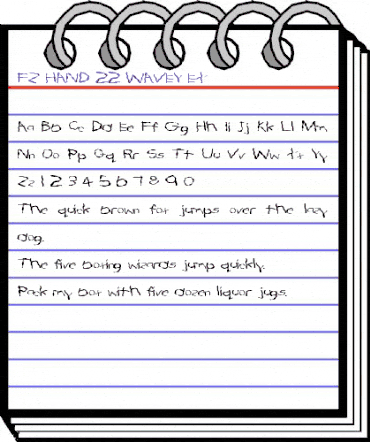 FZ HAND 22 WAVEY EX
Aa Bb Cc Dd Ee Ff Gg Hh Ii Jj Kk Ll Mm
Nn Oo Pp Qq Rr Ss Tt Uu Vv Ww Xx Yy
Zz 1 2 3 4 5 6 7 8 9 0
The quick brown fox jumps over the lazy
dog.
The five boxing wizards jump quickly.
Pack my box with five dozen liquor jugs.